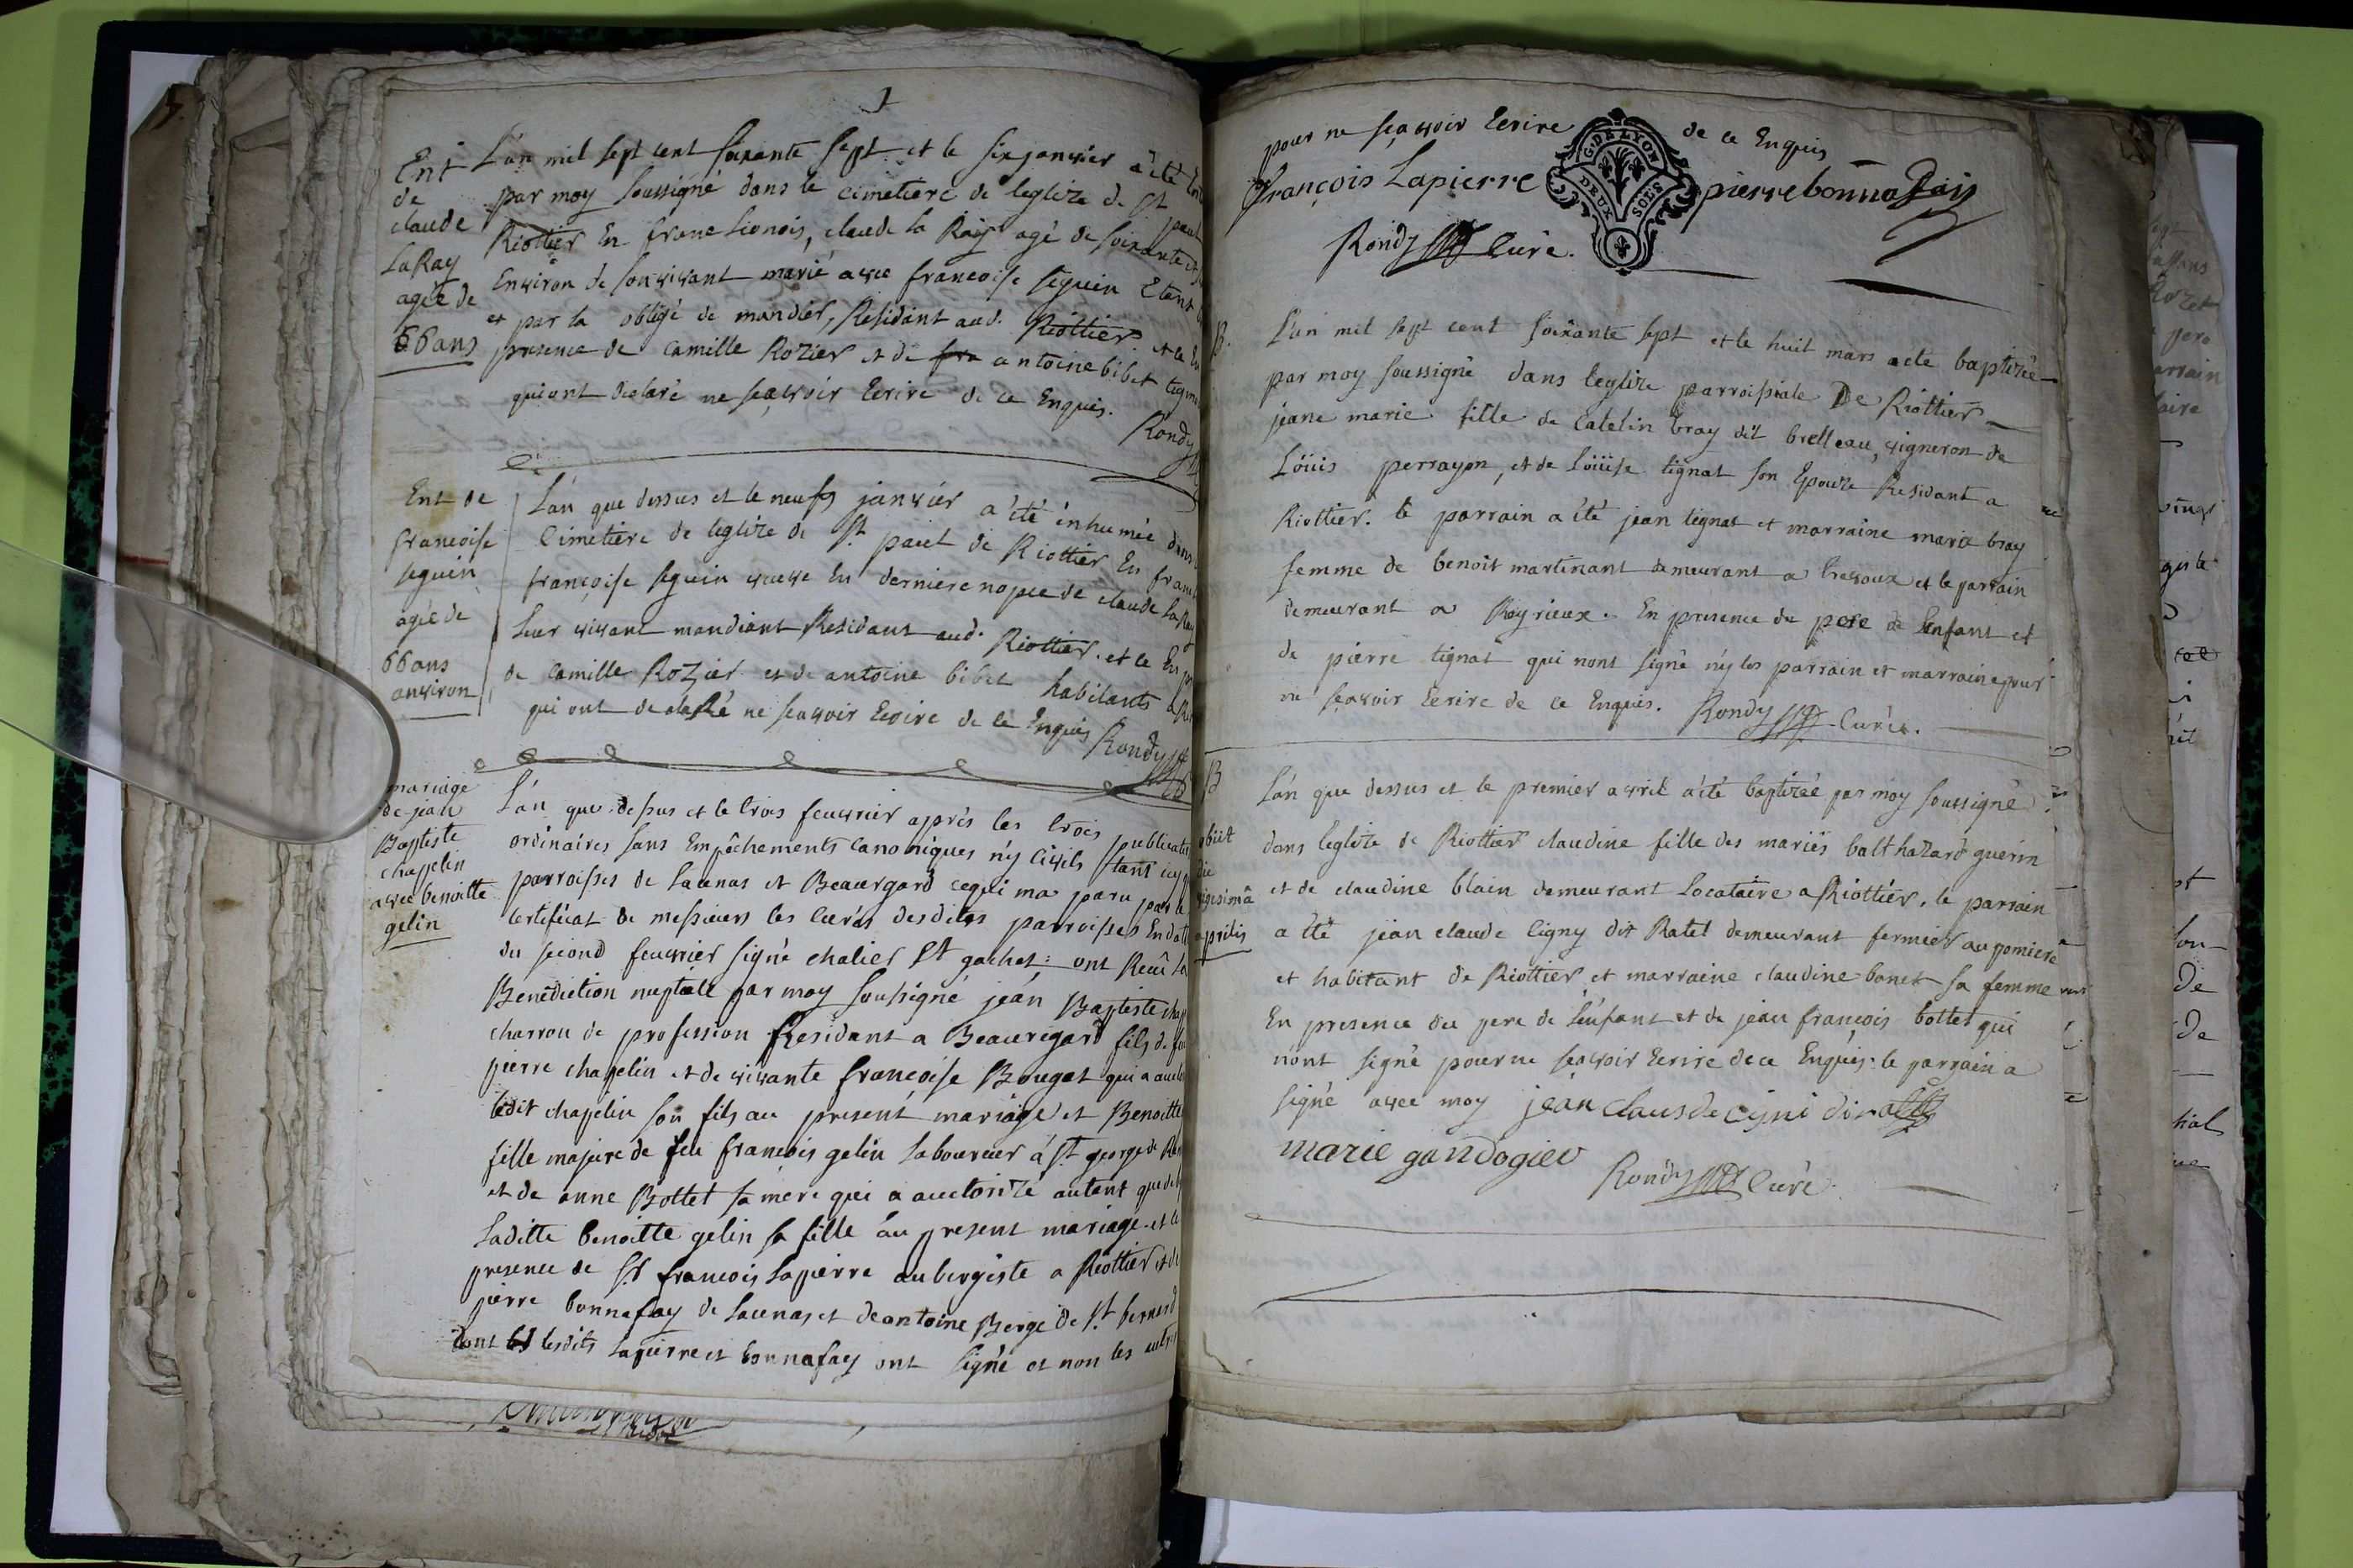 1
Ent
de
claude
LaRay
agée de
66 ans
L'an mil sept cent soixante sept et le six janvier a été
par moy soussigné dans le cimetiere de leglize de St paul
Riottier En franc Lionois, claude la Ray agé de soixante et
Environ de son vivant marié avec francoise seguin Etant
et par la obligé de mandier, Residant aud. Riottier et ce
presence de Camille Rozier et de antoine bibet
qui ont declaré ne sçavoir Ecrire de ce Enquis.
Rondy
Ent de
francoise
seguin
agée de
66 ans
anviron
L'an que dessus et le neufs janvier a été inhumée dans
Cimetiere de leglize de St paul de Riottier En franc
françoise seguin veuve En derniere nopce de claude LaRay
Leur vivant mandiant Residant aud. Riottier. et ce En
de Camille Rozier et de antoine bibet habitants
qui ont declaré ne sçavoir Ecrire de ce Enquis
Rondy
mariage
de jean
Baptiste
chapelin
avec benoitte
gelin
L'an que dessus et le trois feuvrier après les trois
ordinaires sans Empêchements Canoniques n'y Civils
parroisses de Lacenas et Beauregard ce qui ma paru par le
Certificat de messieurs les Curés desdites parroisses En
du second feuvrier signé chalier et gachet: ont Recû La
Benediction nuptiale par moy soussigné jean Baptiste
charron de profession Residant a Beauregard fils de
pierre chapelin et de vivante francoise Bouget qui a
ledit chapelin son fils au present mariage et Benoitte
fille majure de feu francois gelin laboureur à St george de
et de anne Bottet sa mere qui a auctorizé autant que
Laditte benoitte gelin sa fille au present mariage et
presence de sr francois Lapierre aubergiste a Riottier et de
pierre bonnafay de Lacenas et de antoine Berge de St bernard
dont lesdits Lapierre et bonnafay ont signé et non les autres
pour ne sçavoir Ecrire de ce Enquis
G. DE LYON
DEUX SOLS
françois Lapierre
pierre bonnafais
Rondy Curé.
B.
L'an mil sept cent soixante sept et le huit mars a eté baptizée
par moy soussigné dans leglize parroissiale De Riottier
jeane marie fille de Catelin bray dit brelleau, vigneron de
Loüis perrayon, et de Loüise tignat son Epouze Residant a
Riottier. le parrain a été jean tignat et marraine marie bray
femme de benoit martinant demeurant a trevoux et le parrain
demeurant a Reyrieux. En presence du pere de lenfant et
de pierre tignat qui nont signé n'y les parrain et marraine pour
ne sçavoir Ecrire de ce Enquis. Rondy Curé.
B
obiit
die
vigesimâ
aprilis
L'an que dessus et le premier avril a été baptizée par moy soussigné
dans leglize de Riottier claudine fille des mariés balthazard guerin
et de claudine blain demeurant Locataire a Riottier, le parrain
a été jean claude Cigny dit Ratel demeurant fermier au
et habitant de Riottier et marraine claudine bonet sa femme
En presence du pere de lenfant et de jean françois bottet qui
nont signé pour ne sçavoir Ecrire de ce Enquis. le parrain a
signé avec moy jean Clausde cigni
marie gandogier
Rondy Curé